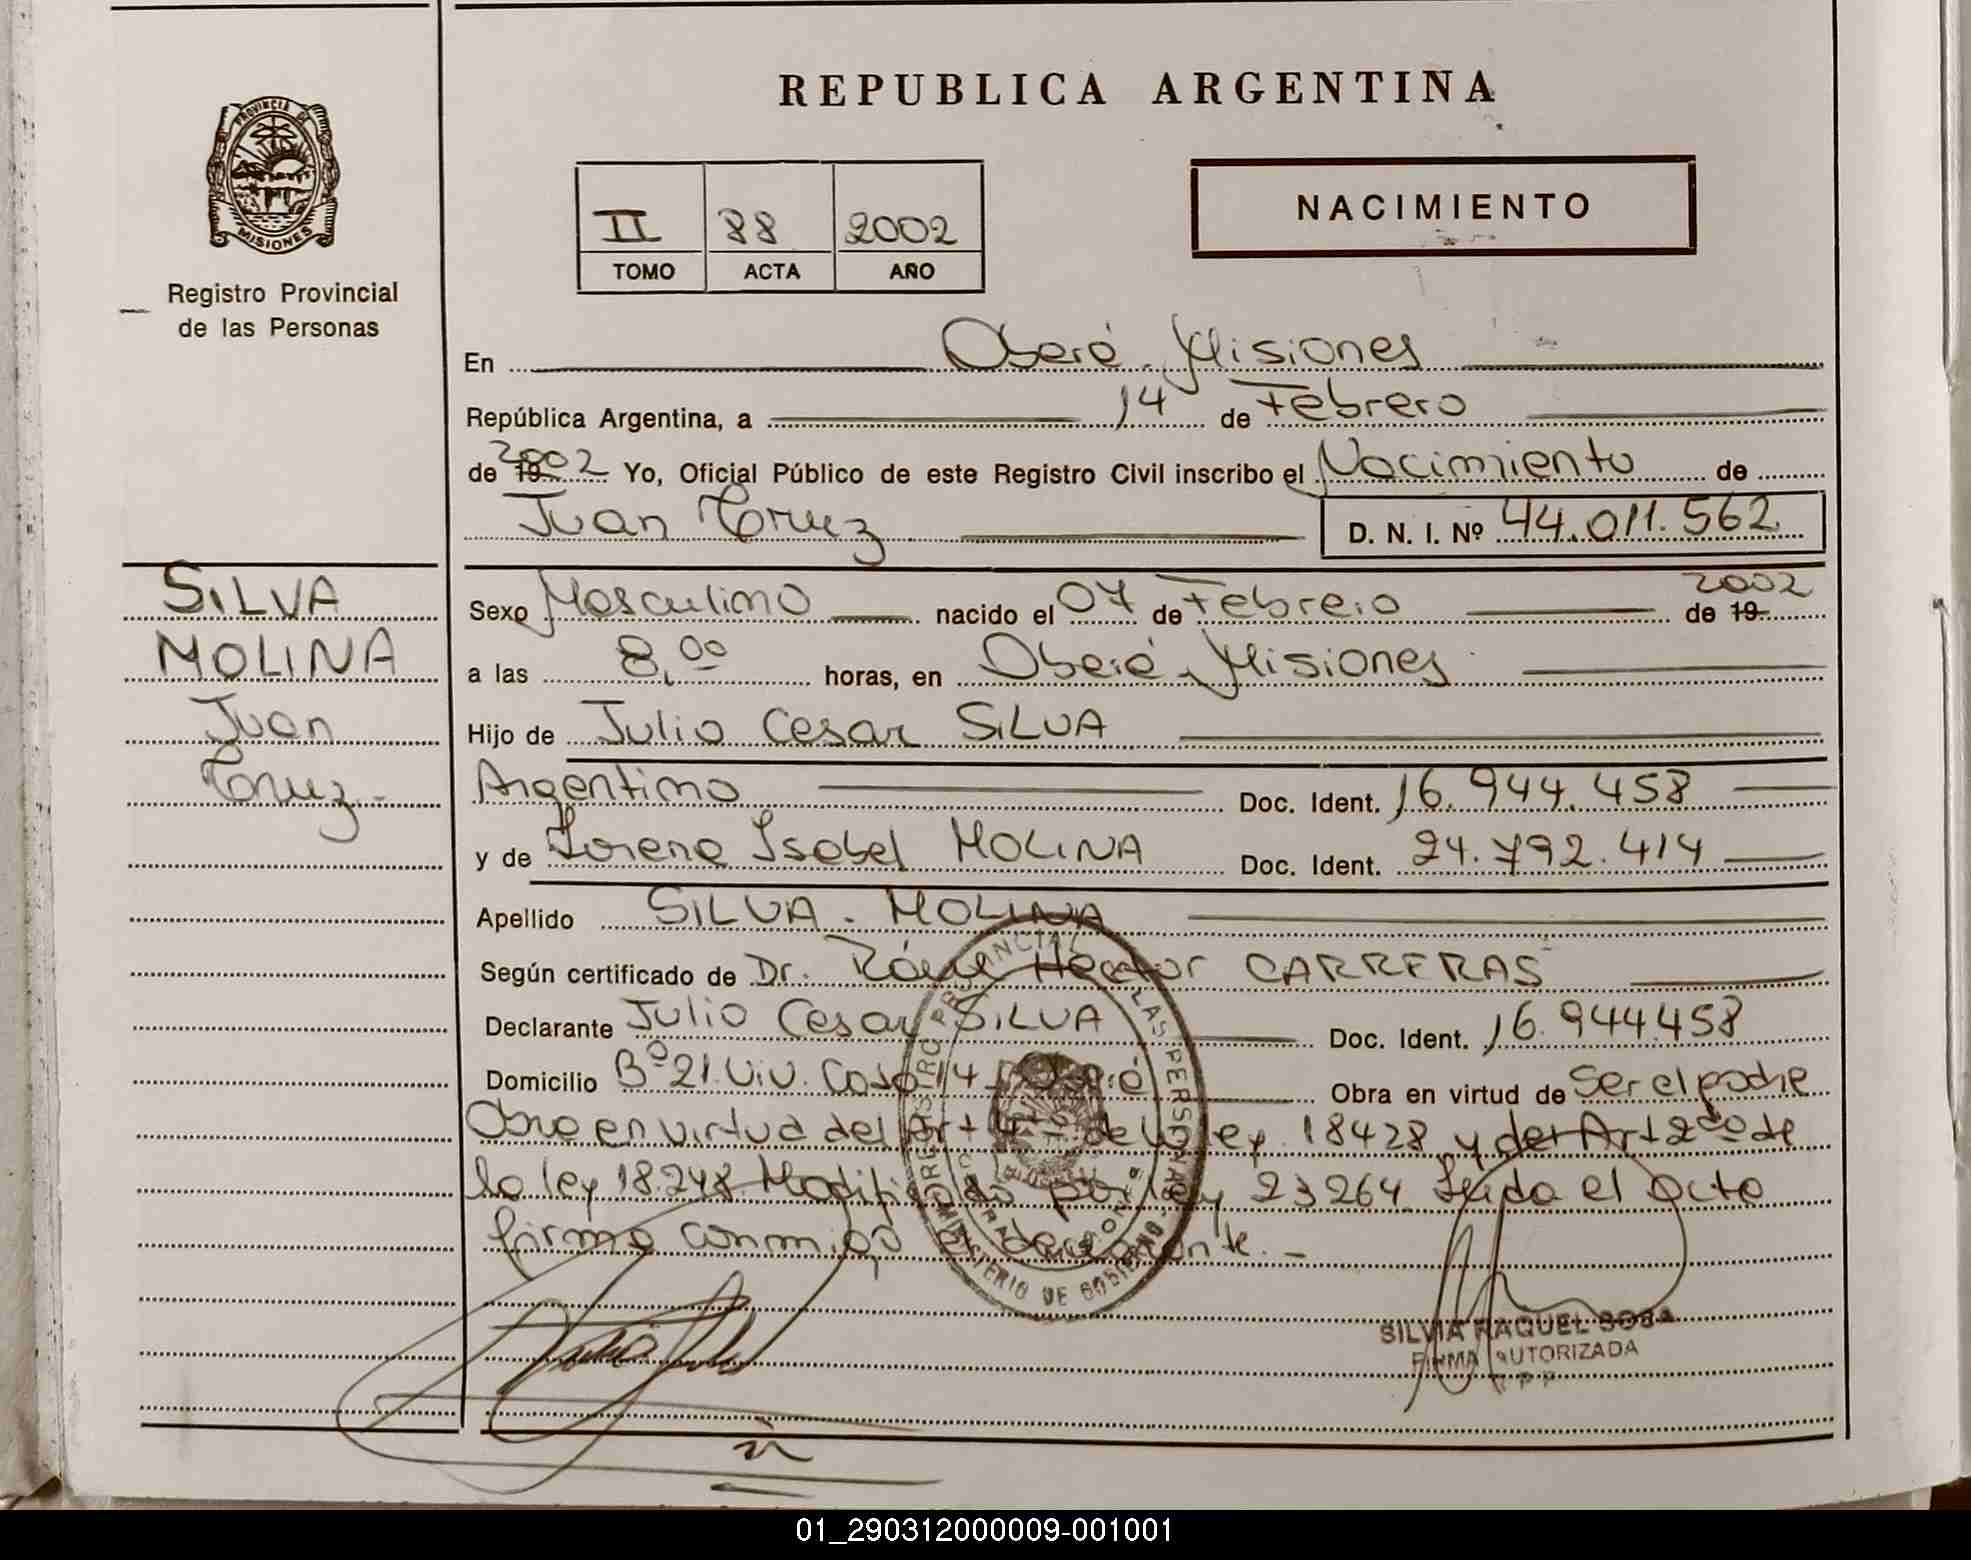 REPUBLICA ARGENTINA
PROVINCIA DE
MISIONES
Registro Provincial
de las Personas
II 88 2002
TOMO ACTA AÑO
NACIMIENTO
En Oberá - Misiones
República Argentina, a 14 de Febrero
de 19 2002 Yo, Oficial Público de este Registro Civil inscribo el Nacimiento de
Juan Cruz D. N. I. Nº 44.011.562
SILVA
MOLINA
Juan
Cruz.-
Sexo Masculino nacido el 07 de Febrero de 19 2002
a las 8,00 horas, en Oberá - Misiones
Hijo de Julio Cesar SILVA
Argentino Doc. Ident. 16.944.458
y de Lorena Isabel MOLINA Doc. Ident. 24.792.414
Apellido SILVA - MOLINA
Según certificado de Dr. Hector CARRERAS
Declarante Julio Cesar SILVA Doc. Ident. 16.944.458
Domicilio Bº 21. Viv. Casa 14 - Oberá Obra en virtud de Ser el padre
Obra en virtud del Art de la ley 18428 y del Art 2do de
la ley 18.248 Modificado por ley 23264. Leida el acta
firma conmigo el declarante. -
REGISTRO PROVINCIAL DE LAS PERSONAS
MINISTERIO DE GOBIERNO
SILVIA RAQUEL SOSA
FIRMA AUTORIZADA
R P P
01_290312000009-001001